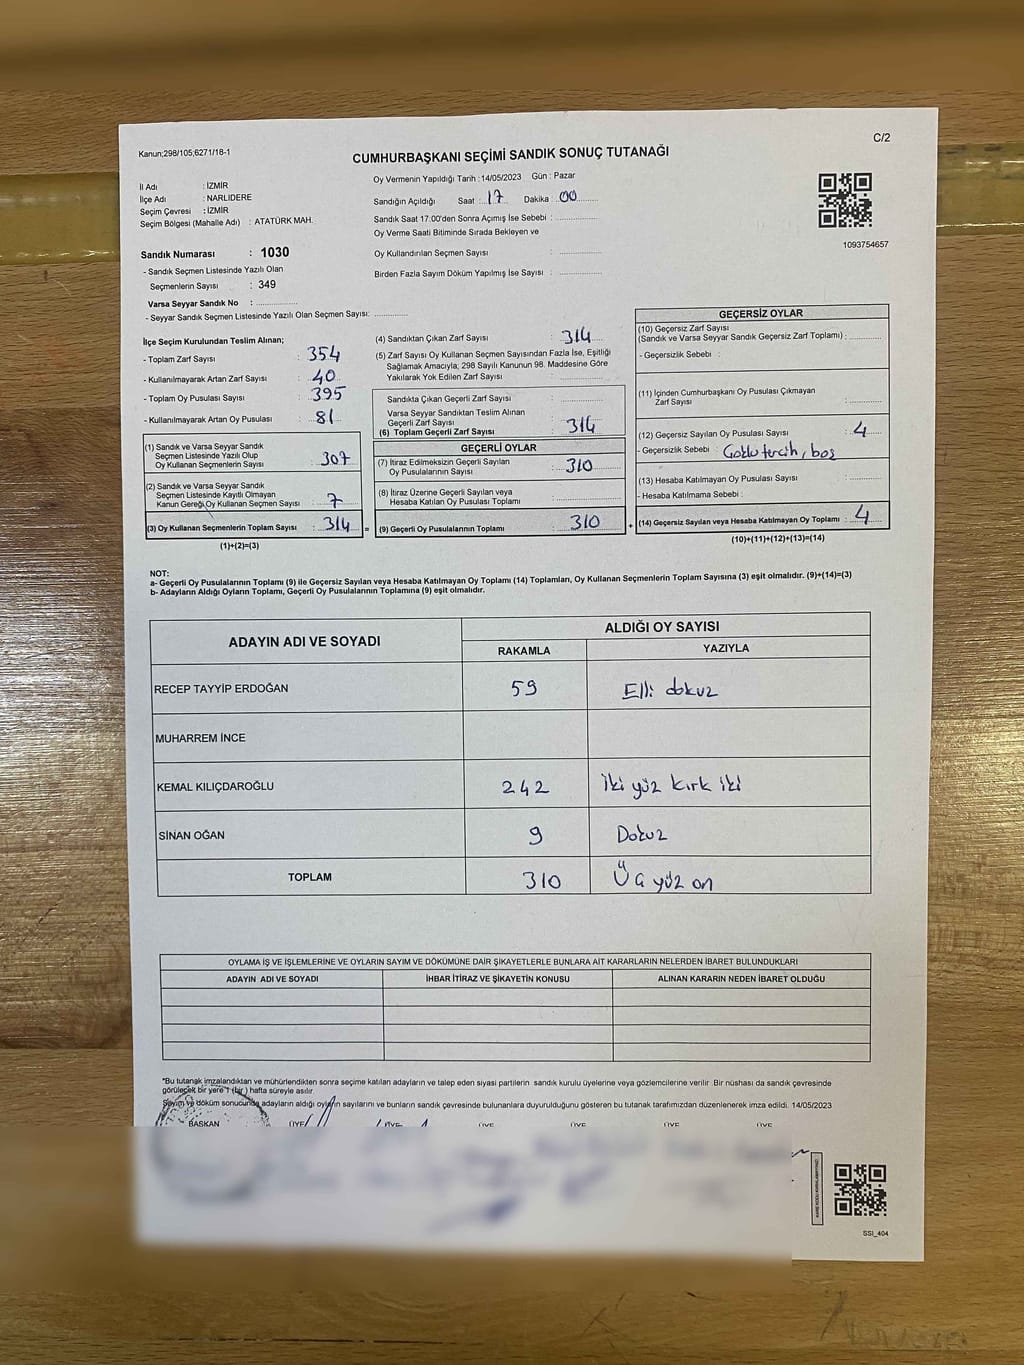 Kanun;298/105;6271/18-1
C/2
CUMHURBAŞKANI SEÇİMİ SANDIK SONUÇ TUTANAĞI
İl Adı : İZMİR
İlçe Adı : NARLIDERE
Seçim Çevresi : İZMİR
Seçim Bölgesi (Mahalle Adı) : ATATÜRK MAH.
Sandık Numarası : 1030
- Sandık Seçmen Listesinde Yazılı Olan
Seçmenlerin Sayısı : 349
Varsa Seyyar Sandık No :
- Seyyar Sandık Seçmen Listesinde Yazılı Olan Seçmen Sayısı:
Oy Vermenin Yapıldığı Tarih :14/05/2023 Gün : Pazar
Sandığın Açıldığı Saat : 17 Dakika : 00
Sandık Saat 17:00'den Sonra Açımış İse Sebebi :
Oy Verme Saati Bitiminde Sırada Bekleyen ve
Oy Kullandırılan Seçmen Sayısı :
Birden Fazla Sayım Döküm Yapılmış İse Sayısı :
1093754657
İlçe Seçim Kurulundan Teslim Alınan;
- Toplam Zarf Sayısı : 354
- Kullanılmayarak Artan Zarf Sayısı : 40
- Toplam Oy Pusulası Sayısı : 395
- Kullanılmayarak Artan Oy Pusulası : 81
(1) Sandık ve Varsa Seyyar Sandık
Seçmen Listesinde Yazılı Olup
Oy Kullanan Seçmenlerin Sayısı : 307
(2) Sandık ve Varsa Seyyar Sandık
Seçmen Listesinde Kayıtlı Olmayan
Kanun Gereği Oy Kullanan Seçmen Sayısı : 7
(3) Oy Kullanan Seçmenlerin Toplam Sayısı : 314 =
(1)+(2)=(3)
(4) Sandıktan Çıkan Zarf Sayısı : 314
(5) Zarf Sayısı Oy Kullanan Seçmen Sayısından Fazla İse, Eşitliği
Sağlamak Amacıyla; 298 Sayılı Kanunun 98. Maddesine Göre
Yakılarak Yok Edilen Zarf Sayısı :
Sandıkta Çıkan Geçerli Zarf Sayısı :
Varsa Seyyar Sandıktan Teslim Alınan
Geçerli Zarf Sayısı :
(6) Toplam Geçerli Zarf Sayısı : 314
GEÇERLİ OYLAR
(7) İtiraz Edilmeksizin Geçerli Sayılan
Oy Pusulalarının Sayısı : 310
(8) İtiraz Üzerine Geçerli Sayılan veya
Hesaba Katılan Oy Pusulası Toplamı :
(9) Geçerli Oy Pusulalarının Toplamı : 310 +
GEÇERSİZ OYLAR
(10) Geçersiz Zarf Sayısı
(Sandık ve Varsa Seyyar Sandık Geçersiz Zarf Toplamı) :
- Geçersizlik Sebebi :
(11) İçinden Cumhurbaşkanı Oy Pusulası Çıkmayan
Zarf Sayısı :
(12) Geçersiz Sayılan Oy Pusulası Sayısı : 4
- Geçersizlik Sebebi : Çoklu tercih, boş
(13) Hesaba Katılmayan Oy Pusulası Sayısı :
- Hesaba Katılmama Sebebi :
(14) Geçersiz Sayılan veya Hesaba Katılmayan Oy Toplamı : 4
(10)+(11)+(12)+(13)=(14)
NOT:
a- Geçerli Oy Pusulalarının Toplamı (9) ile Geçersiz Sayılan veya Hesaba Katılmayan Oy Toplamı (14) Toplamları, Oy Kullanan Seçmenlerin Toplam Sayısına (3) eşit olmalıdır. (9)+(14)=(3)
b- Adayların Aldığı Oyların Toplamı, Geçerli Oy Pusulalarının Toplamına (9) eşit olmalıdır.
ADAYIN ADI VE SOYADI
ALDIĞI OY SAYISI
RAKAMLA YAZIYLA
RECEP TAYYİP ERDOĞAN 59 Elli dokuz
MUHARREM İNCE
KEMAL KILIÇDAROĞLU 242 İki yüz kırk iki
SİNAN OĞAN 9 Dokuz
TOPLAM 310 Üç yüz on
OYLAMA İŞ VE İŞLEMLERİNE VE OYLARIN SAYIM VE DÖKÜMÜNE DAİR ŞİKAYETLERLE BUNLARA AİT KARARLARIN NELERDEN İBARET BULUNDUKLARI
ADAYIN ADI VE SOYADI İHBAR İTİRAZ VE ŞİKAYETİN KONUSU ALINAN KARARIN NEDEN İBARET OLDUĞU
*Bu tutanak imzalandıktan ve mühürlendikten sonra seçime katılan adayların ve talep eden siyasi partilerin sandık kurulu üyelerine veya gözlemcilerine verilir. Bir nüshası da sandık çevresinde
görülecek bir yere 1 (bir) hafta süreyle asılır.
Sayım ve döküm sonucunda adayların aldığı oyların sayılarını ve bunların sandık çevresinde bulunanlara duyurulduğunu gösteren bu tutanak tarafımızdan düzenlenerek imza edildi. 14/05/2023
BAŞKAN ÜYE ÜYE ÜYE ÜYE ÜYE ÜYE
SSI_404